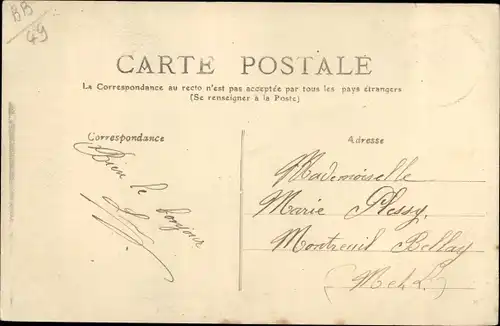 BB
49
CARTE POSTALE
La Correspondance au recto n'est pas acceptée par tous les pays étrangers
(Se renseigner à la Poste)
Correspondance
Bien le bonjour
Adresse
Mademoiselle
Marie Plessy
Montreuil Bellay
(M et L.)